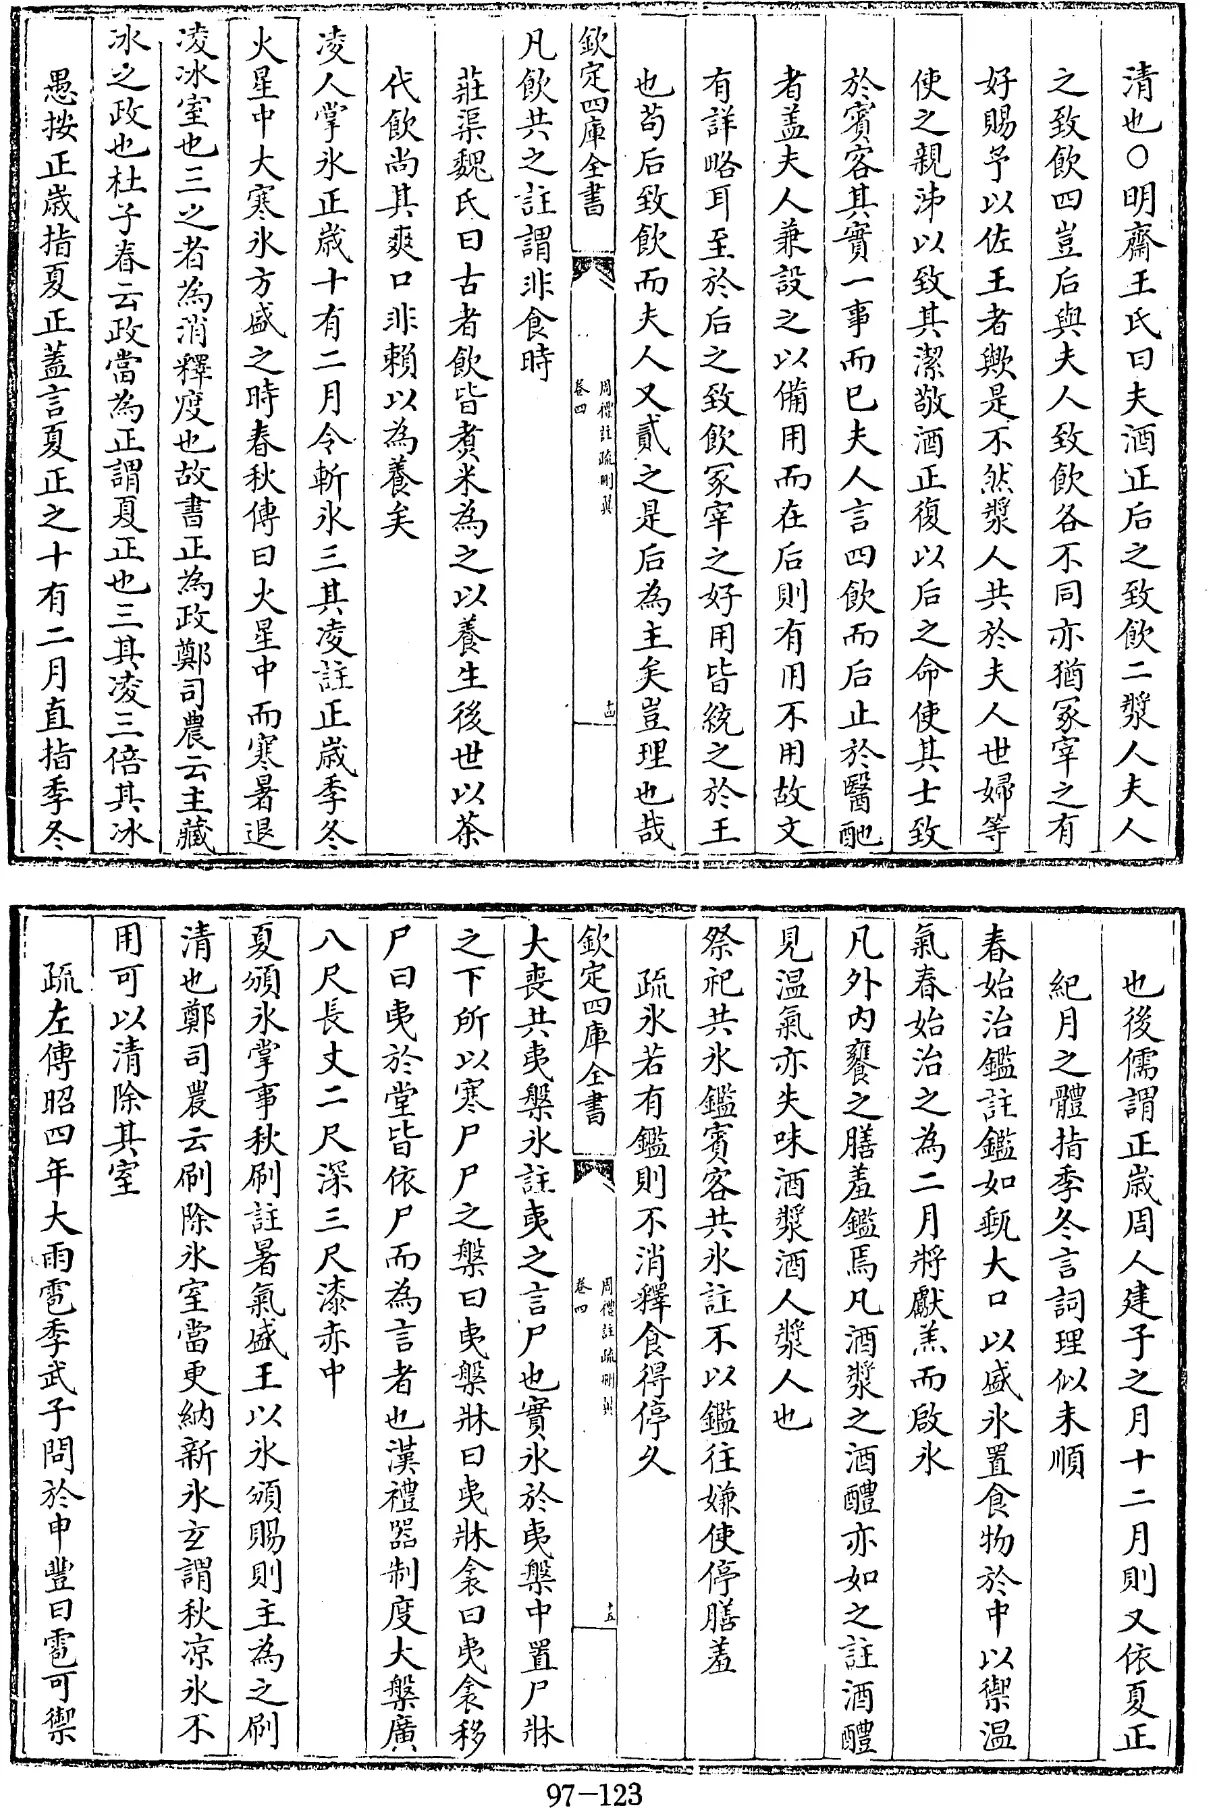 清也〇明齋王氏曰夫酒正后之致飲二漿人夫人
之致飲四豈后與夫人致飲各不同亦猶冢宰之有
好賜予以佐王者歟是不然漿人共於夫人世婦等
使之親沛以致其潔敬酒正復以后之命使其士致
於賓客其實一事而已夫人言四飲而后止於醫酏
者盖夫人兼設之以備用而在后則有用不用故文
有詳略耳至於后之致飲冢宰之好用皆統之於王
也苟后致飲而夫人又貳之是后為主矣豈理也哉
欽定四庫全書
周禮註疏刪翼
卷四
十四
凡飲共之註謂非食時
莊渠魏氏曰古者飲皆煑米為之以養生後世以茶
代飲尚其爽口非賴以為養矣
凌人掌氷正歲十有二月令斬氷三其凌註正歲季冬
火星中大寒氷方盛之時春秋傳曰火星中而寒暑退
凌冰室也三之者為消釋度也故書正為政鄭司農云主藏
冰之政也杜子春云政當為正謂夏正也三其凌三倍其冰
愚按正歲指夏正蓋言夏正之十有二月直指季冬
也後儒謂正歲周人建子之月十二月則又依夏正
紀月之體指季冬言詞理似未順
春始治鑑註鑑如甀大口以盛氷置食物於中以禦溫
氣春始治之為二月將獻羔而啟氷
凡外内饔之膳羞鑑焉凡酒漿之酒醴亦如之註酒醴
見温氣亦失味酒漿酒人漿人也
祭祀共氷鑑賓客共氷註不以鑑往嫌使停膳羞
疏氷若有鑑則不消釋食得停久
欽定四庫全書
周禮註疏刪翼
卷四
十五
大喪共夷槃氷註夷之言尸也實氷於夷槃中置尸牀
之下所以寒尸尸之槃曰夷槃牀曰夷牀衾曰夷衾移
尸曰夷於堂皆依尸而為言者也漢禮器制度大槃廣
八尺長丈二尺深三尺漆赤中
夏頒氷掌事秋刷註暑氣盛王以氷頒賜則主為之刷
清也鄭司農云刷除氷室當更納新氷玄謂秋凉氷不
用可以清除其室
疏左傳昭四年大雨雹季武子問於申豐曰雹可禦
97-123